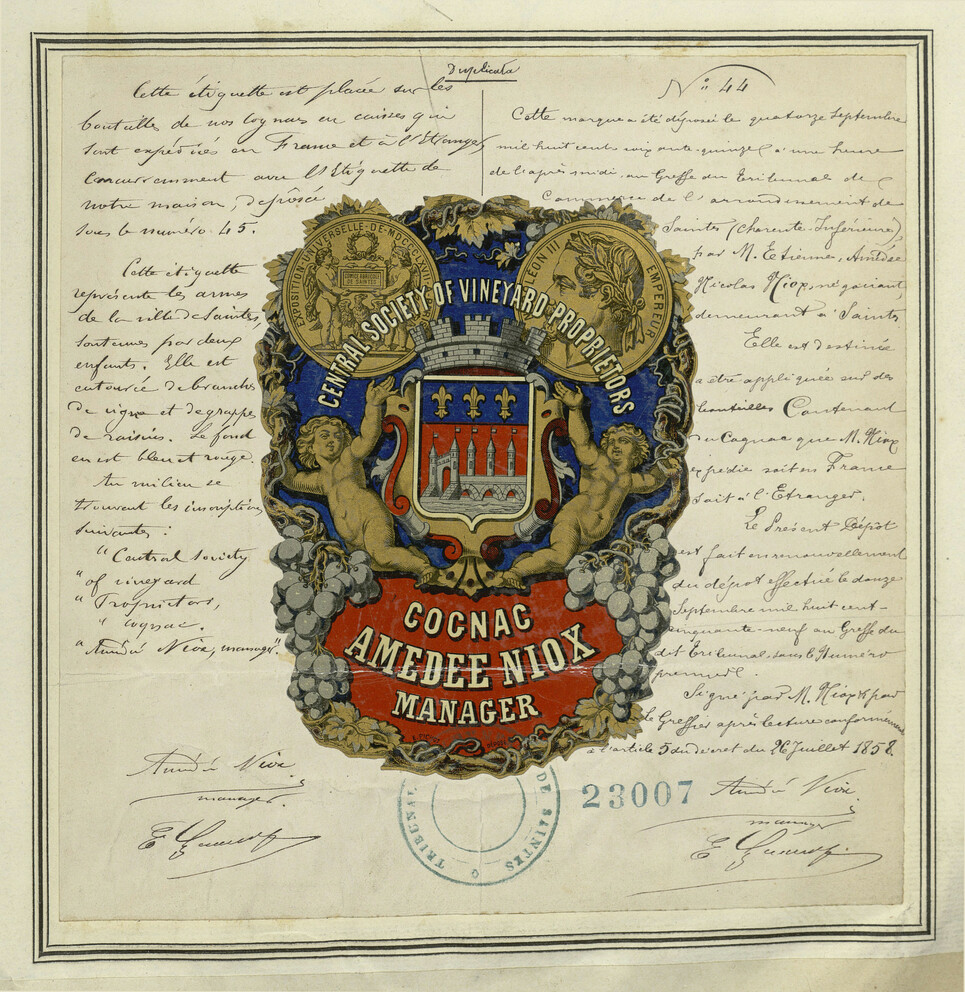 Duplicata
Cette étiquette est placée sur les
bouteilles de nos Cognacs en caisses qui
sont expédiées en France et à l'Etranger,
Concurremment avec l'Etiquette de
notre maison, déposée
sous le numéro 45.
Cette étiquette
représente les armes
de la ville de Saintes,
soutenues par deux
enfants. Elle est
entourée de branches
de vigne et de grappes
de raisins. Le fond
en est bleu et rouge.
Au milieu se
trouvent les inscriptions
suivantes :
" Central Society
" of vineyard
" Proprietors,
" Cognac.
" Amédée Niox, manager."
Amédée Niox
manager.
N° 44
Cette marque a été déposée le quatorze Septembre
mil huit cent soixante-quinze à une heure
de l'après midi, au Greffe du Tribunal de
Commerce de l'arrondissement de
Saintes (Charente-Inférieure),
par M. Etienne, Amédée
Nicolas Niox, négociant,
demeurant à Saintes
Elle est destinée
a être appliquée sur des
bouteilles Contenant
du Cognac que M. Niox
expédie soit en France
soit à l'Etranger.
Le Présent Dépôt
est fait en renouvellement
du dépôt effectué le douze
Septembre mil huit cent-
cinquante-neuf au Greffe du
dit Tribunal sous le Numéro
premier.
Signé par M. Niox & par
le Greffier après lecture conformément
a l'article 5 du décret du 26 Juillet 1858.
Amédée Niox
manager
EXPOSITION UNIVERSELLE DE MDCCCLXVII
COMICE AGRICOLE
DE SAINTES
LEON III EMPEREUR
CENTRAL SOCIETY OF VINEYARD PROPRIETORS
COGNAC
AMEDEE NIOX
MANAGER
TRIBUNAL DE SAINTES
23007